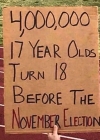 4,000,000
17 YEAR OLDS
TURN 18
BEFORE THE
NOVEMBER ELECTION